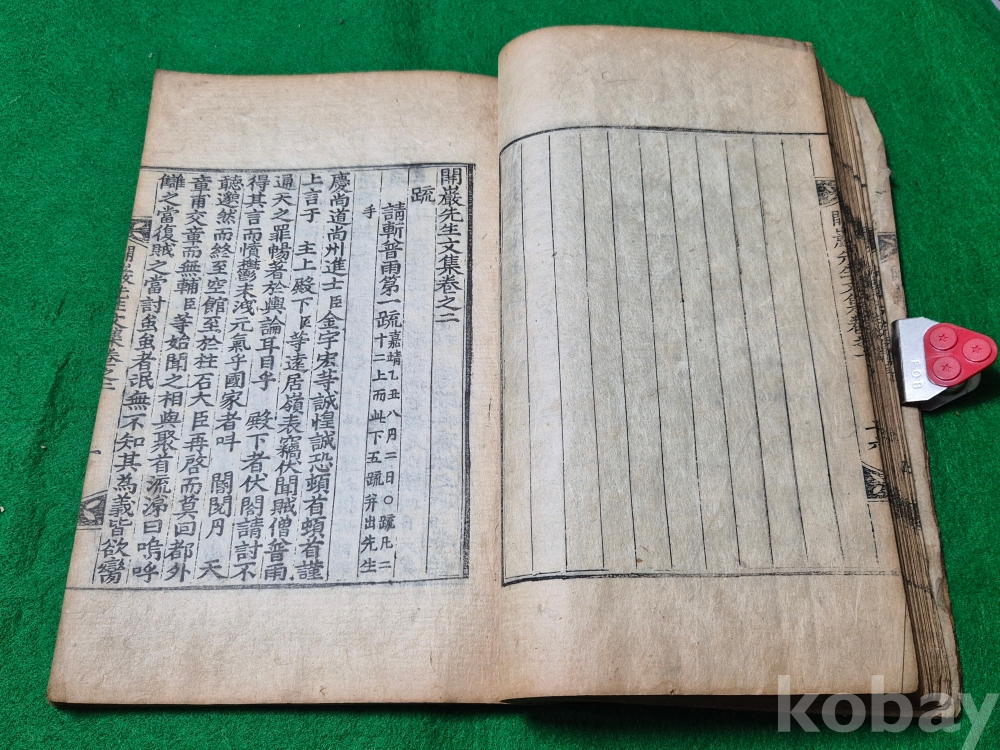 開巖先生文集卷之二
疏
請斬普雨第一疏 嘉靖乙丑八月二日○疏凡二
十二上而此下五疏并出先生
手
慶尚道尚州進士臣金宇宏等誠惶誠恐頓首頓首謹
上言于 主上殿下臣等遠居嶺表竊伏聞賊僧普雨
通天之罪暢著於輿論耳目乎 殿下者伏閤請討不
得其言而憤欝未洩元氣乎國家者叫 閤閱月 天
聽邈然而終至空館至於柱石大臣再啓而莫回都外
章甫交章而無輔臣等始聞之相與聚首流涕曰嗚呼
讎之當復賊之當討蚩蚩者氓無不知其為義皆欲臠
開巖先生文集卷之二
一
開巖先生文集卷之一
十六
EOB
kobay